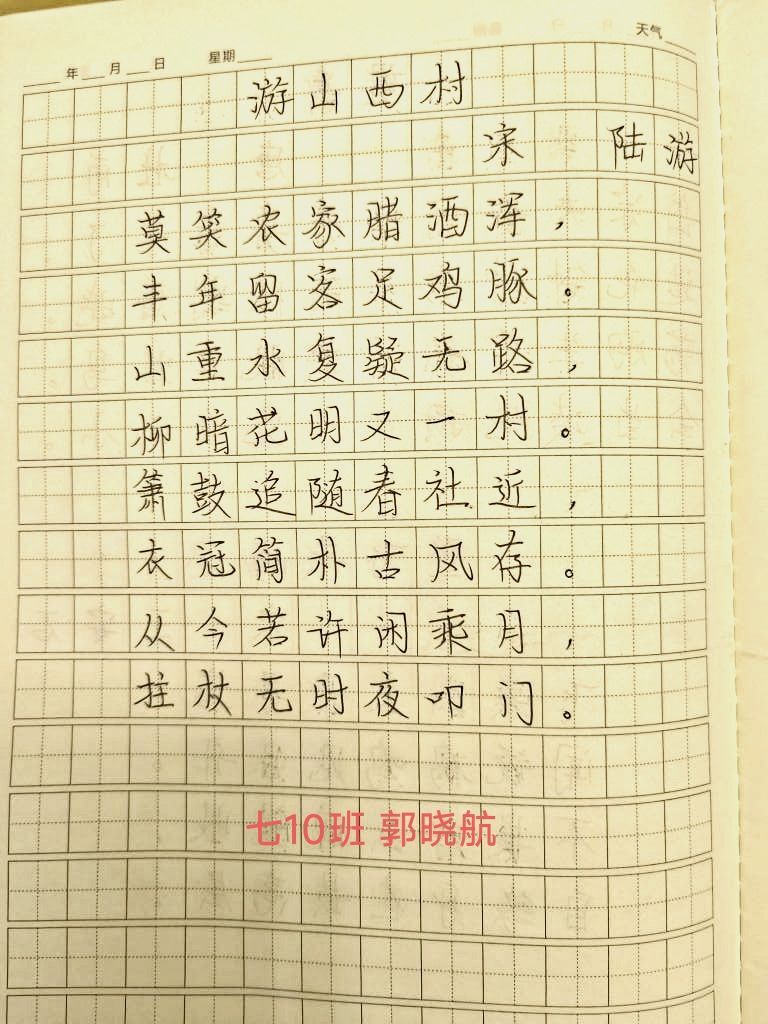 年 月 日 星期 天气
游山西村
宋 陆游
莫笑农家腊酒浑，
丰年留客足鸡豚。
山重水复疑无路，
柳暗花明又一村。
箫鼓追随春社近，
衣冠简朴古风存。
从今若许闲乘月，
拄杖无时夜叩门。
七10班 郭晓航